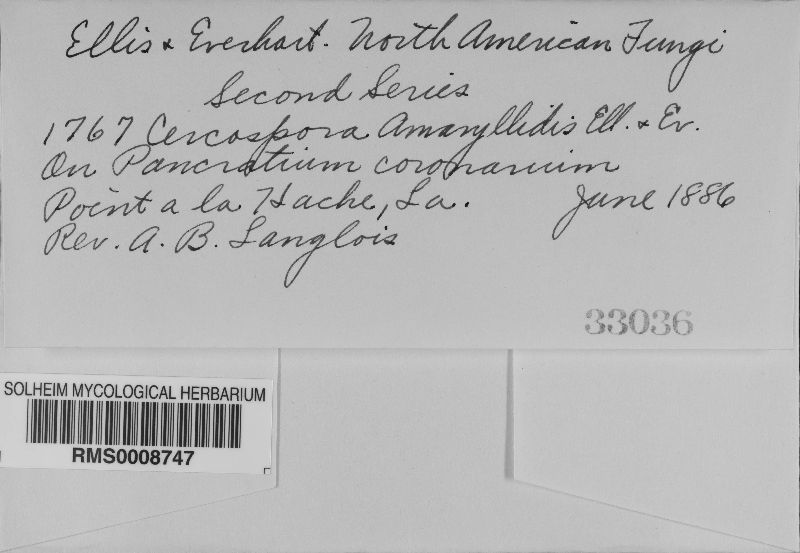 Ellis & Everhart. North American Fungi
Second Series
1767 Cercospora Amaryllidis Ell. & Ev.
On Pancratium coronarium
Point a la Hache, La. June 1886
Rev. A. B. Langlois
33036
SOLHEIM MYCOLOGICAL HERBARIUM
RMS0008747